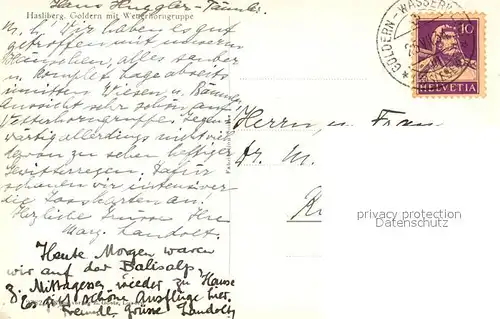 Hans Huggler-
Hasliberg. Goldern mit Wetterhorngruppe
M. L! Wir haben es gut
getroffen mit unserm
Häuschen, alles sauber
u. komplet. Lage abseits
inmitten Wiesen u. Bäumen
Aussicht sehr schön auf
Wetterhorngruppe. Gegen-
wärtig allerdings nicht viel
davon zu sehen heftiger
Gewitterregen. Dafür
schauen wir intensiver
die Landkarten an.
Herzliche Grüsse Ihre
Marg. Landolt.
Heute Morgen waren
wir auf der Balisalp
z. Mittagessen wieder zu Hause
Es gibt schöne Ausflüge hier.
Freundl. Grüsse Landolt
GOLDERN - WASSERW
10
HELVETIA
Herrn u. Frau
Dr. M.
privacy protection